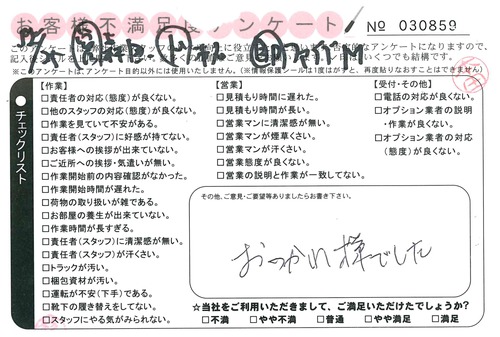 お客様不満足度アンケート
№ 030859
記入後シールを
(※このアンケートは、アンケート目的以外には使用いたしません。)(※情報保護シールは1度はがすと、再度貼りなおすことはできません)
チェックリスト
【作業】
□責任者の対応(態度)が良くない。
□他のスタッフの対応(態度)が良くない。
□作業を見ていて不安がある。
□責任者(スタッフ)に好感が持てない。
□お客様への挨拶が出来ていない。
□ご近所への挨拶・気遣いが無い。
□作業開始前の内容確認がなかった。
□作業開始時間が遅れた。
□荷物の取り扱いが雑である。
□お部屋の養生が出来ていない。
□作業時間が長すぎる。
□責任者(スタッフ)に清潔感が無い。
□責任者(スタッフ)が汗くさい。
□トラックが汚い。
□梱包資材が汚い。
□運転が不安(下手)である。
□靴下の履き替えをしてない。
□スタッフにやる気がみられない。
【営業】
□見積もり時間に遅れた。
□見積もり時間が長い。
□営業マンに清潔感が無い。
□営業マンが煙草くさい。
□営業マンが汗くさい。
□営業態度が良くない。
□営業の説明と作業が一致してない。
【受付・その他】
□電話の対応が良くない。
□オプション業者の説明
・作業が良くない。
□オプション業者の対応
(態度)が良くない。
その他、ご意見・ご要望等ありましたらお書き下さい。
おつかれ様でした
☆当社をご利用いただきまして、ご満足いただけたでしょうか?
□不満 □やや不満 □普通 □やや満足 □満足